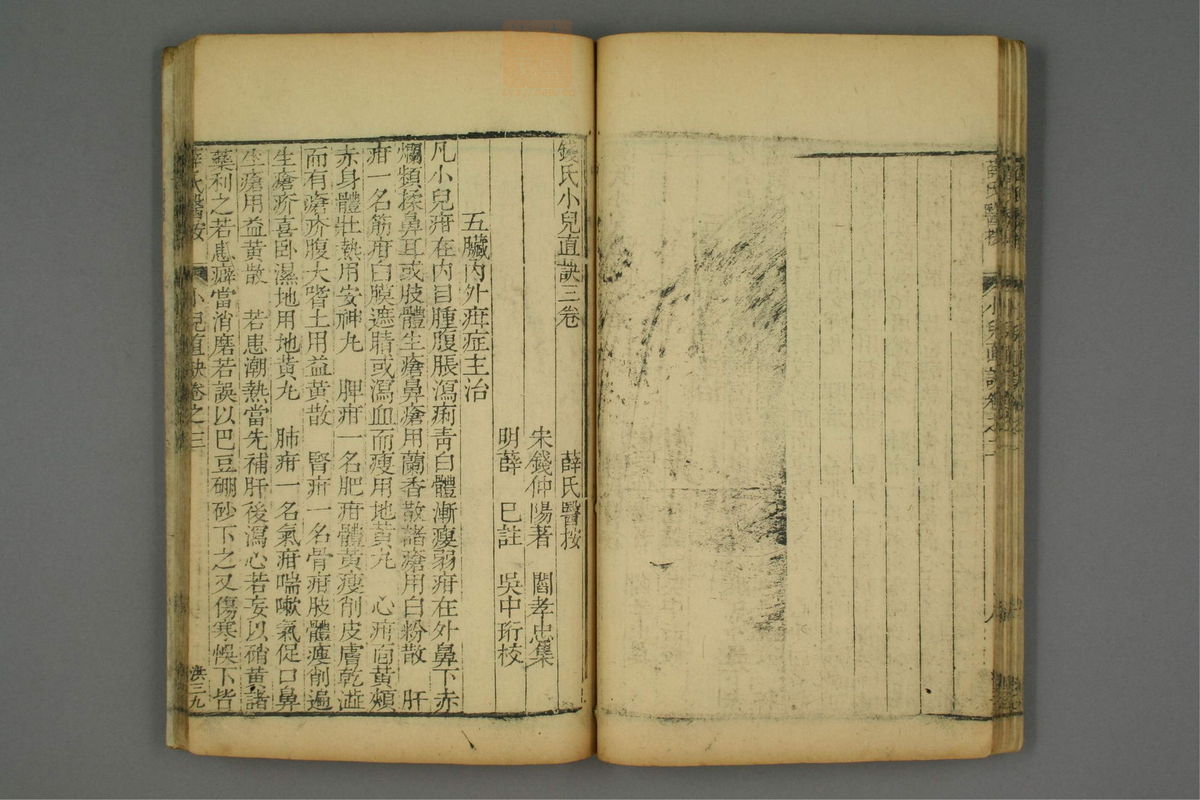 薛氏醫按
小兒直訣卷之二
八
錢氏小兒直訣三卷
薛氏醫按
宋錢仲陽著 閻孝忠集
明薛 巳註 吳中珩校
五臟內外疳症主治
凡小兒疳在內目腫腹脹瀉痢青白體漸瘦弱疳在外鼻下赤
爛頻揉鼻耳或肢體生瘡鼻瘡用蘭香散諸瘡用白粉散 肝
疳一名筋疳白膜遮睛或瀉血而瘦用地黃丸 心疳面黃頰
赤身體壯熱用安神丸 脾疳一名肥疳體黃瘦削皮膚乾澁
而有瘡疥腹大嗜土用益黃散 腎疳一名骨疳肢體瘦削遍
生瘡疥喜卧濕地用地黃丸 肺疳一名氣疳喘嗽氣促口鼻
生瘡用益黃散 若患潮熱當先補肝後瀉心若妄以硝黃諸
藥利之若患癖當消磨若誤以巴豆硼砂下之又傷寒悞下皆
薛氏醫按
小兒直訣卷之三
洪三九